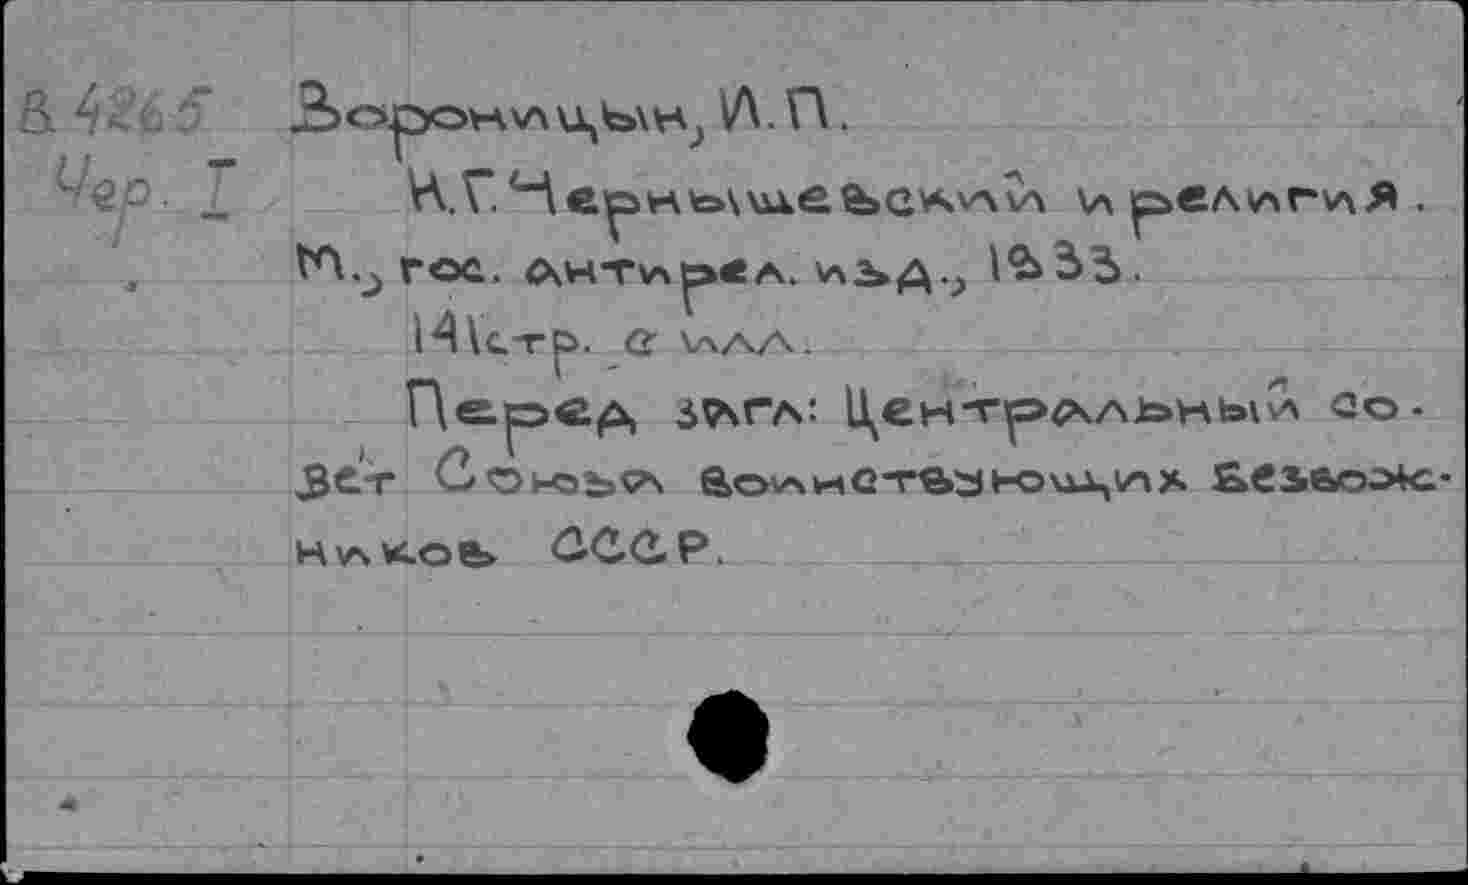 В 4265
Вороницын, И.П.
Чер. I
Н.Г. Чернышевский и религия.
М., гос. антирел. изд., 1933.
141стр. с илл.
Перед загл: Центральный со-
вет Союза воинствующих безбож-
ников СССР.